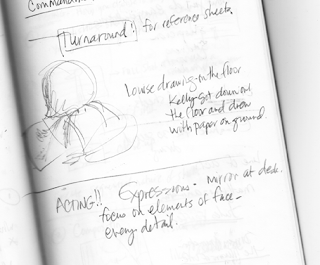 Turnaround! for reference sheets.
Louise drawing on the floor
Kelly-Sit down on
the floor and draw
with paper on ground.
ACTING!! Expressions - Mirror at desk.
focus on elements of face -
every detail.